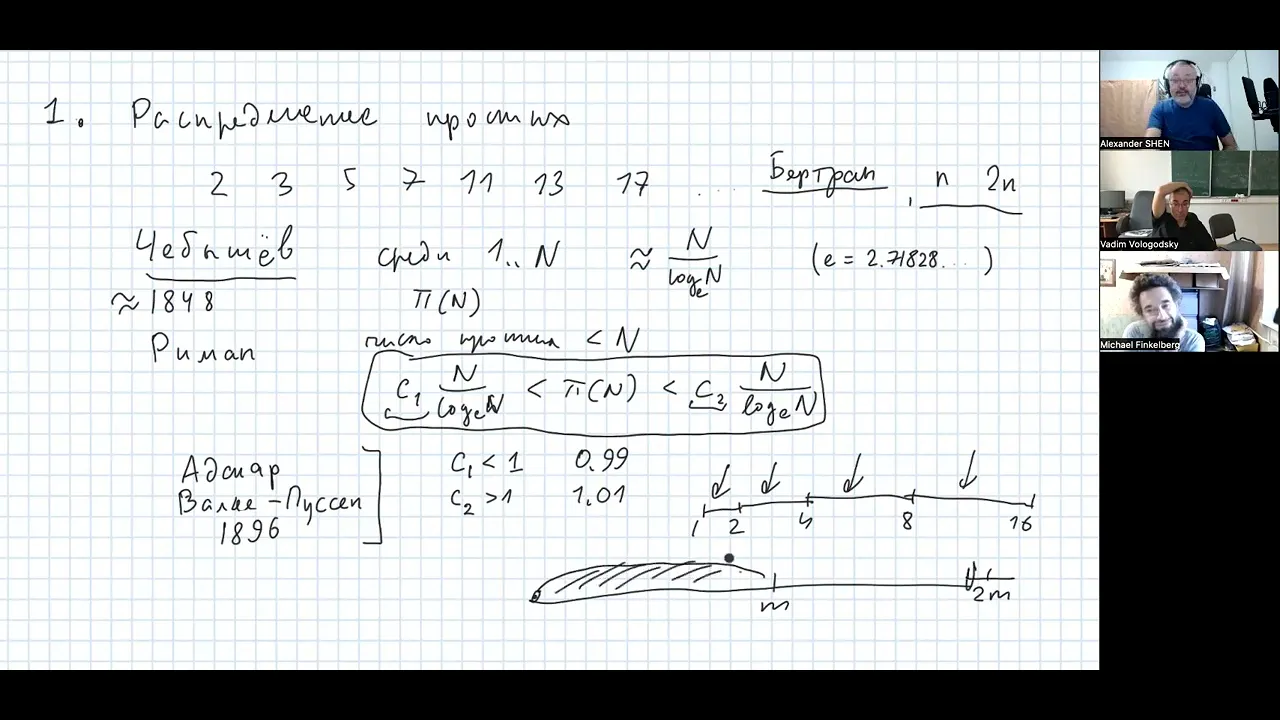 1. Распределение простых
2 3 5 7 11 13 17 ... Бертран, n 2n
Чебышёв среди 1..N ≈ N / log_e N (e = 2.71828...)
≈ 1848 π(N)
Риман число простых < N
C₁ N / log_e N < π(N) < C₂ N / log_e N
Адамар
Валле-Пуссен
1896
C₁ < 1 0.99
C₂ > 1 1.01
1 2 4 8 16
m 2m
Alexander SHEN
Vadim Vologodsky
Michael Finkelberg